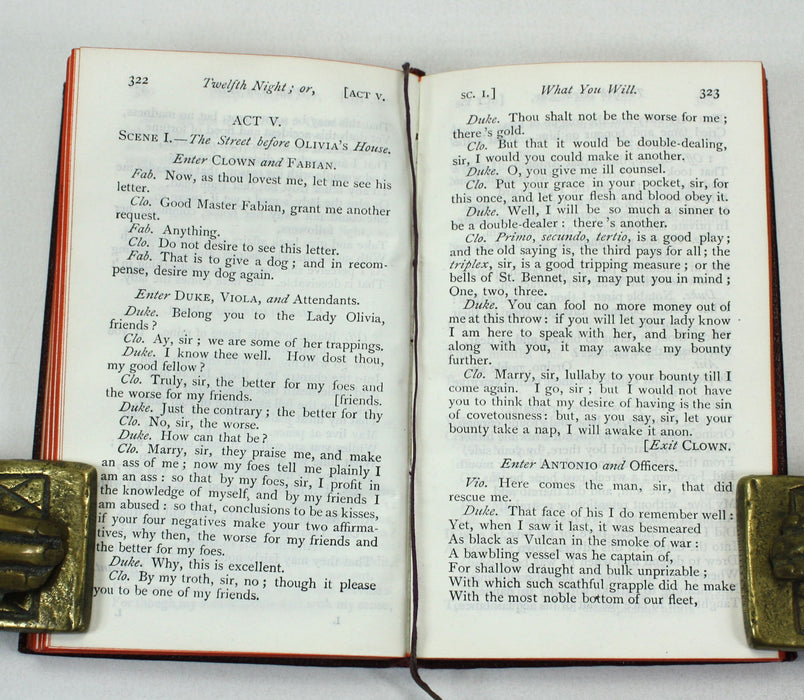 322 Twelfth Night; or, [ACT V.
ACT V.
SCENE I.—The Street before OLIVIA'S House.
Enter CLOWN and FABIAN.
Fab. Now, as thou lovest me, let me see his
letter.
Clo. Good Master Fabian, grant me another
request.
Fab. Anything.
Clo. Do not desire to see this letter.
Fab. That is to give a dog; and in recom-
pense, desire my dog again.
Enter DUKE, VIOLA, and Attendants.
Duke. Belong you to the Lady Olivia,
friends?
Clo. Ay, sir; we are some of her trappings.
Duke. I know thee well. How dost thou,
my good fellow?
Clo. Truly, sir, the better for my foes and
the worse for my friends. [friends.
Duke. Just the contrary; the better for thy
Clo. No, sir, the worse.
Duke. How can that be?
Clo. Marry, sir, they praise me, and make
an ass of me; now my foes tell me plainly I
am an ass: so that by my foes, sir, I profit in
the knowledge of myself, and by my friends I
am abused: so that, conclusions to be as kisses,
if your four negatives make your two affirma-
tives, why then, the worse for my friends and
the better for my foes.
Duke. Why, this is excellent.
Clo. By my troth, sir, no; though it please
you to be one of my friends.
SC. I.] What You Will. 323
Duke. Thou shalt not be the worse for me;
there's gold.
Clo. But that it would be double-dealing,
sir, I would you could make it another.
Duke. O, you give me ill counsel.
Clo. Put your grace in your pocket, sir, for
this once, and let your flesh and blood obey it.
Duke. Well, I will be so much a sinner to
be a double-dealer: there's another.
Clo. Primo, secundo, tertio, is a good play;
and the old saying is, the third pays for all; the
triplex, sir, is a good tripping measure; or the
bells of St. Bennet, sir, may put you in mind;
One, two, three.
Duke. You can fool no more money out of
me at this throw: if you will let your lady know
I am here to speak with her, and bring her
along with you, it may awake my bounty
further.
Clo. Marry, sir, lullaby to your bounty till I
come again. I go, sir; but I would not have
you to think that my desire of having is the sin
of covetousness: but, as you say, sir, let your
bounty take a nap, I will awake it anon.
[Exit CLOWN.
Enter ANTONIO and Officers.
Vio. Here comes the man, sir, that did
rescue me.
Duke. That face of his I do remember well:
Yet, when I saw it last, it was besmeared
As black as Vulcan in the smoke of war:
A bawbling vessel was he captain of,
For shallow draught and bulk unprizable;
With which such scathful grapple did he make
With the most noble bottom of our fleet,